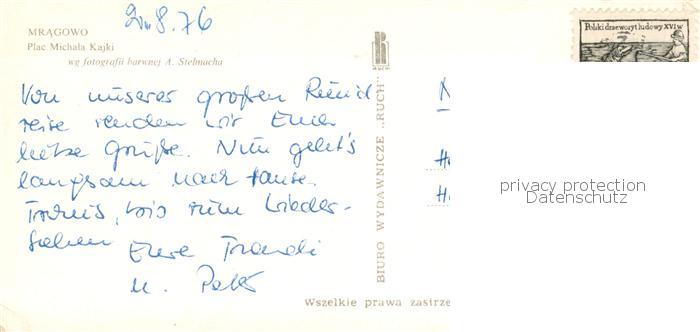 2. 8. 76
MRĄGOWO
Plac Michała Kajki
wg fotografii barwnej A. Stelmacha
Polski drzeworyt ludowy XVI w
Von unserer großen Rund
reise senden wir Euch
liebe Grüße. Nun geht's
langsam nach Hause.
Tschüs, bis zum Wieder-
sehen Eure
u.
BIURO WYDAWNICZE „RUCH"
RUCH
N
H
H
privacy protection
Datenschutz
Wszelkie prawa zastrze